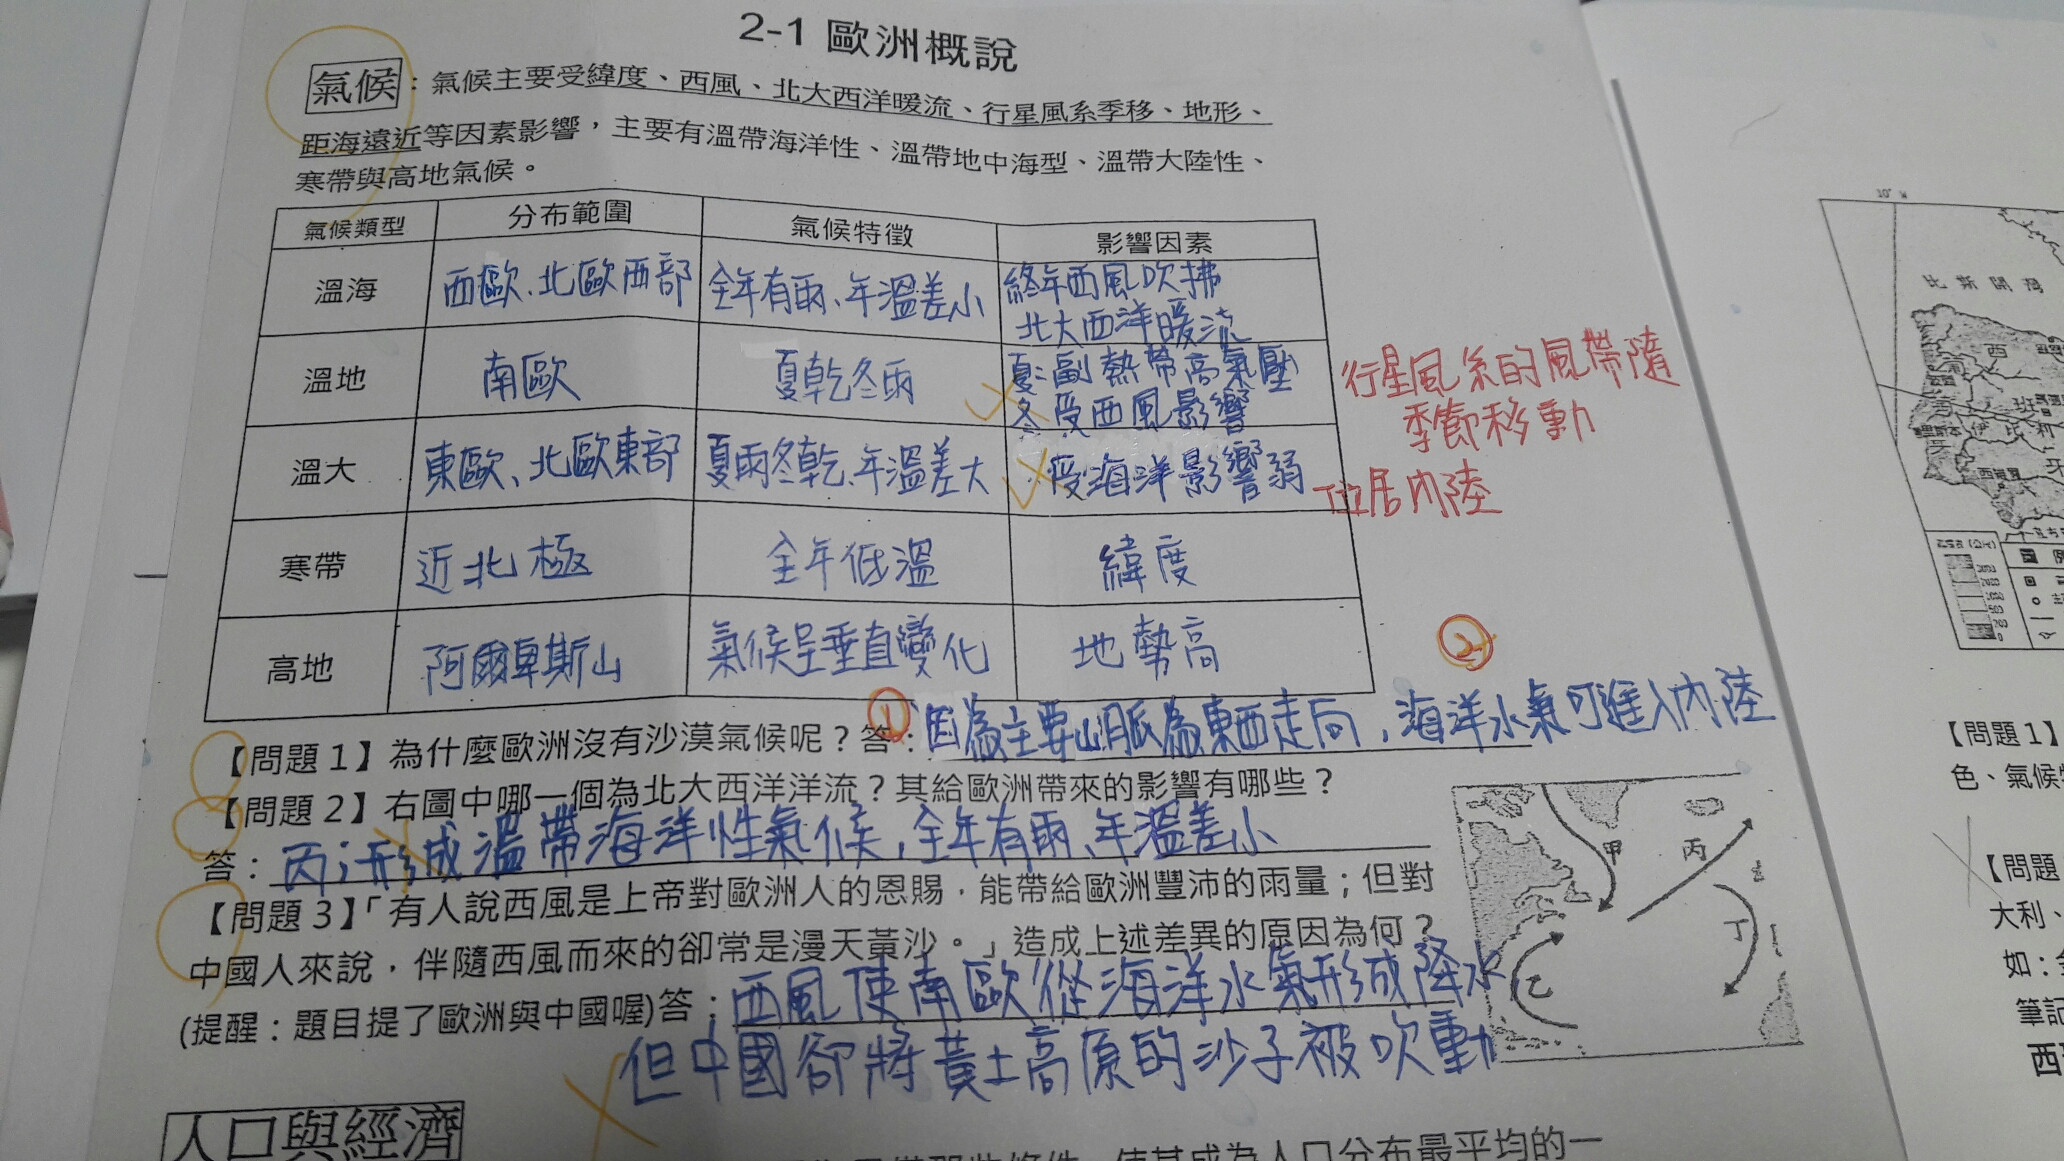 2-1 歐洲概說
氣候：氣候主要受緯度、西風、北大西洋暖流、行星風系季移、地形、
距海遠近等因素影響，主要有溫帶海洋性、溫帶地中海型、溫帶大陸性、
寒帶與高地氣候。
氣候類型 分布範圍 氣候特徵 影響因素
溫海 西歐、北歐西部 全年有雨、年溫差小 終年西風吹拂
北大西洋暖流
溫地 南歐 夏乾冬雨 夏:副熱帶高氣壓
冬受西風影響
行星風系的風帶隨
季節移動
溫大 東歐、北歐東部 夏雨冬乾、年溫差大 受海洋影響弱
位居內陸
寒帶 近北極 全年低溫 緯度
高地 阿爾卑斯山 氣候呈垂直變化 地勢高
① ②
【問題 1】為什麼歐洲沒有沙漠氣候呢？答：因為主要山脈為東西走向，海洋水氣可進入內陸
【問題 2】右圖中哪一個為北大西洋洋流？其給歐洲帶來的影響有哪些？
答：丙；形成溫帶海洋性氣候，全年有雨、年溫差小
【問題 3】「有人說西風是上帝對歐洲人的恩賜，能帶給歐洲豐沛的雨量；但對
中國人來說，伴隨西風而來的卻常是漫天黃沙。」造成上述差異的原因為何？
(提醒：題目提了歐洲與中國喔)答：西風使南歐從海洋水氣形成降水
但中國卻將黃土高原的沙子被吹動
甲 丙
丁
乙
人口與經濟
使其成為人口分布最平均的一
10° W
比斯開灣
西
班
牙
【問題 1】
色、氣候
【問題
大利、
如：
筆記
西